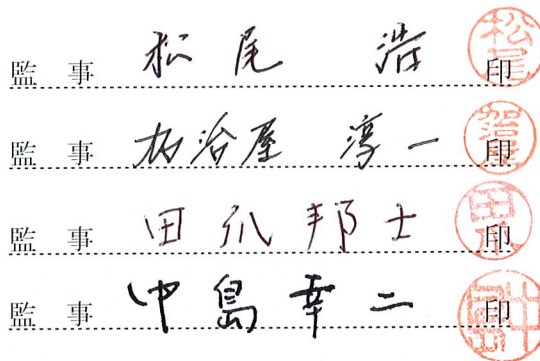 監事 松尾 浩 印
監事 加治屋 淳一 印
監事 田爪邦士 印
監事 中島幸二 印